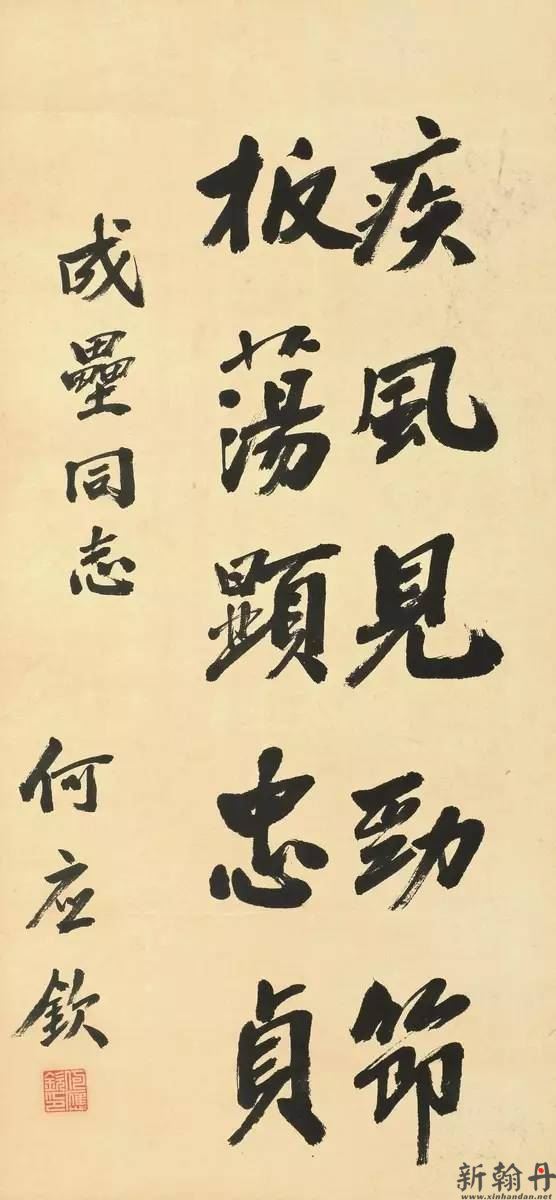 疾風見勁節
板蕩顯忠貞
成壘同志
何应欽
何應欽印
新翰丹
www.xinhandan.net